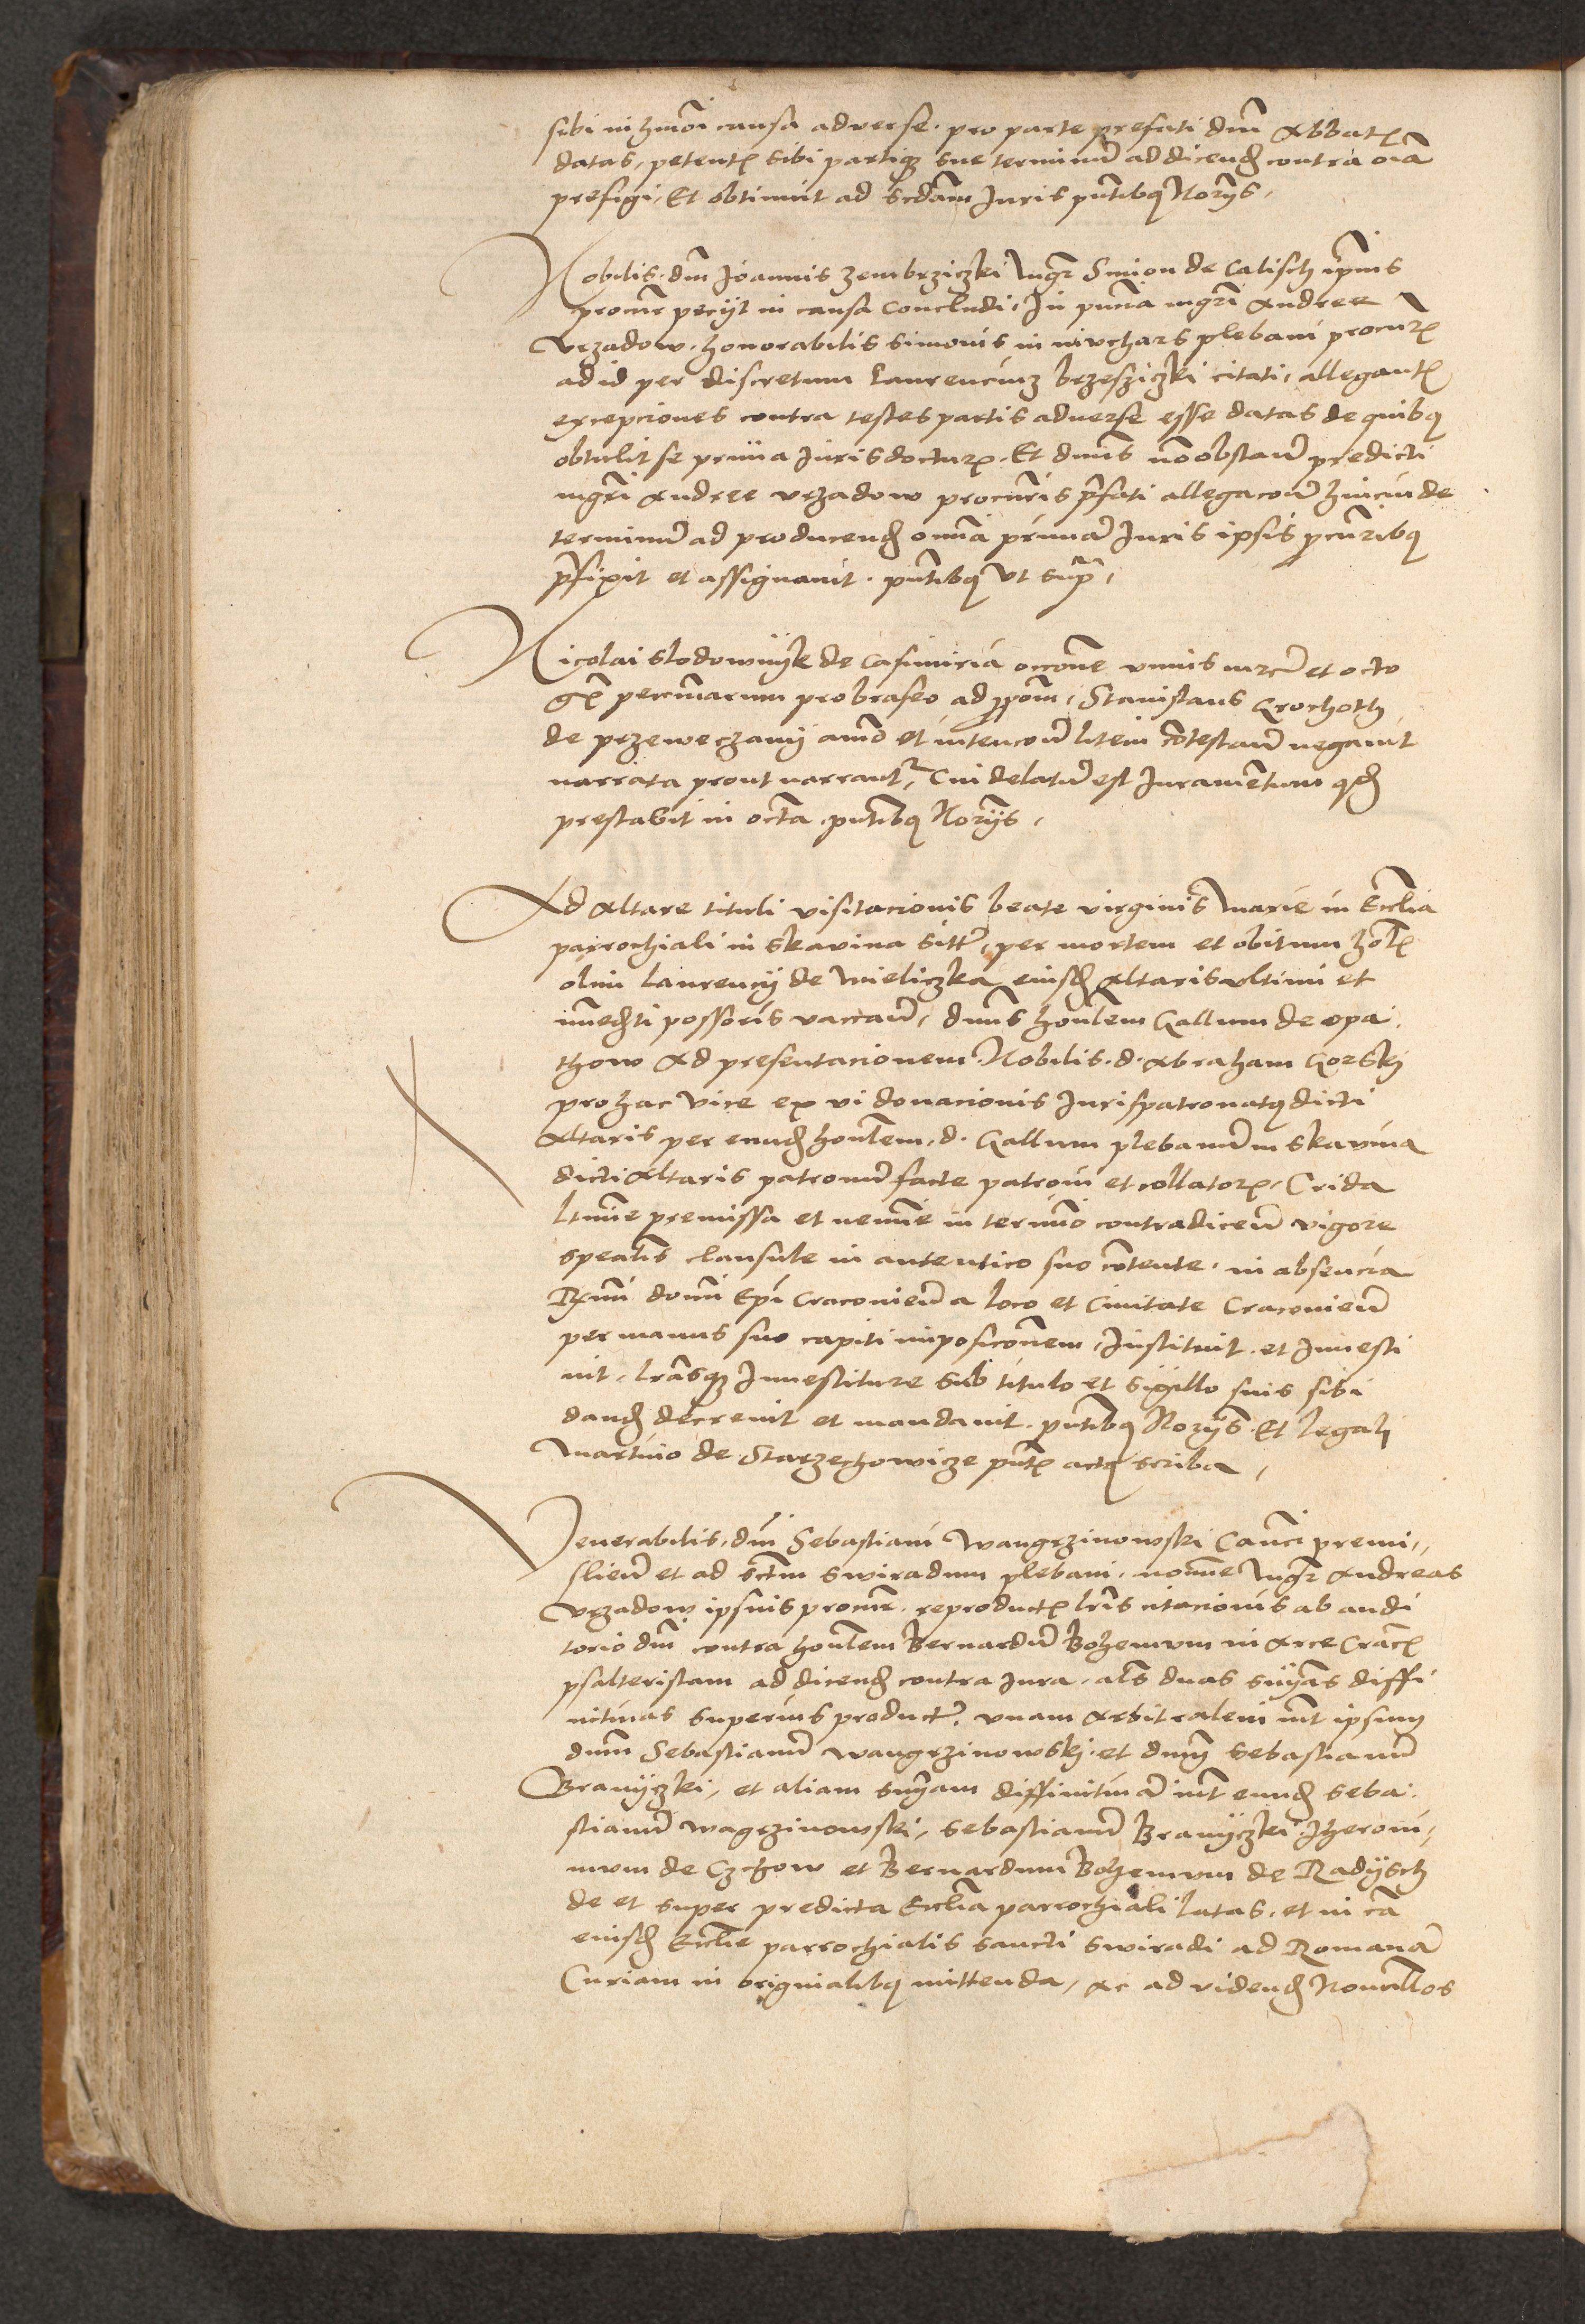 sibi in hmoi causa adverse . pro parte prefati dni Abbatis
datas, petentis sibi partique sue terminum ad dicendum contra oia
prefigi, Et obtinuit ad scdam Juris pntibus Norys,
Nobilis . dni Joannis Zembrziczki Mgr Simon de Calisch ipsius
procur pecyt in causa concludi, In pncia mgri Andree
Vrzadow . honorabilis Simonis in plebani procuris
ad id per discretum Laurencium brzesziczki citati, allegantis
excepciones contra testes partis adverse esse datas de quibus
obtulit se prima Juris docturum . Et dnus non obstan predicti
mgri Andree Vrzadow procuris prefati allegacon huicinde
terminum ad producendum omnia primam Juris ipsis procuribus
prefixit et assignavit . pntibus Vt supra,
Nicolai Slodownyk de Casimiria occone vnius mrce et octo
gr pecuniarum pro braseo ad ppoitom, Stanislaus Grochoth
de przeweczany animo et intencon litem contestan negavit
narrata prout narrantur, Cui delatum est Juramentum quod
prestabit in octa . pntibus Norys,
Ad Altare tituli visitacionis beate virginis Marie in Ecclia
parrochiali in Skavina sitt, per mortem et obitum holis
olim Laurency de Wieliczka eiusdem Altaris vltimi et
immediti possoris vacan, dnus honlem Gallum de Opa
thow Ad presentacionem Nobilis . d . Abraham Gorskj
pro hac vice ex vi donacionis Jurispatronatus dicti
Altaris per eundem honlem . d . Gallum plebanum in Skavina
dicti Altaris patronum facte patroni et collatoris, Crida
ltime premissa et nemine in termino contradicen vigore
spealis clausule in autentico suo contente . in absencia
Rxmi domi Epi Cracovien a loco et Civitate Cracovien
per manus suo capiti imposiconem, Instituit . et Investi
vit, lrasque Investiture sub titulo et sigillo suis sibi
dandum decrevit et mandavit . pntibus Norys . Et legalj
Martino de Starzechowicze pntis actus scriba,
Venerabilis . dni Sebastiani Wangrzinowski Canci premi,,
slien et ad sctm Swiradum plebani . nomine Mgr Andreas
Vrzadow ipsius procur . reproductis lris citacionis ab audi
torio dni contra honlem Bernardum Bohemum in Arce Cracis
psalteristam ad dicendum contra Jura, als duas snias diffi
nitivas superius product . vnam Arbitralem int ipsum
dnum Sebastianum Wangrzinowskj . et dnum Sebastianum
Branyczki, et aliam sniam diffinitivam int eundem Seba
stianum Wagrzinowski, Sebastianum Branyczki Jheroni,
mum de Czchow et Bernardum Bohemum de Radysch
de et super predicta Ecclia parrochiali latas, et in ca
eiusdem Ecclie parrochialis sancti Swiradi ad Romanam
Curiam in originalibus mittenda, Ac ad videndum Nonnullos